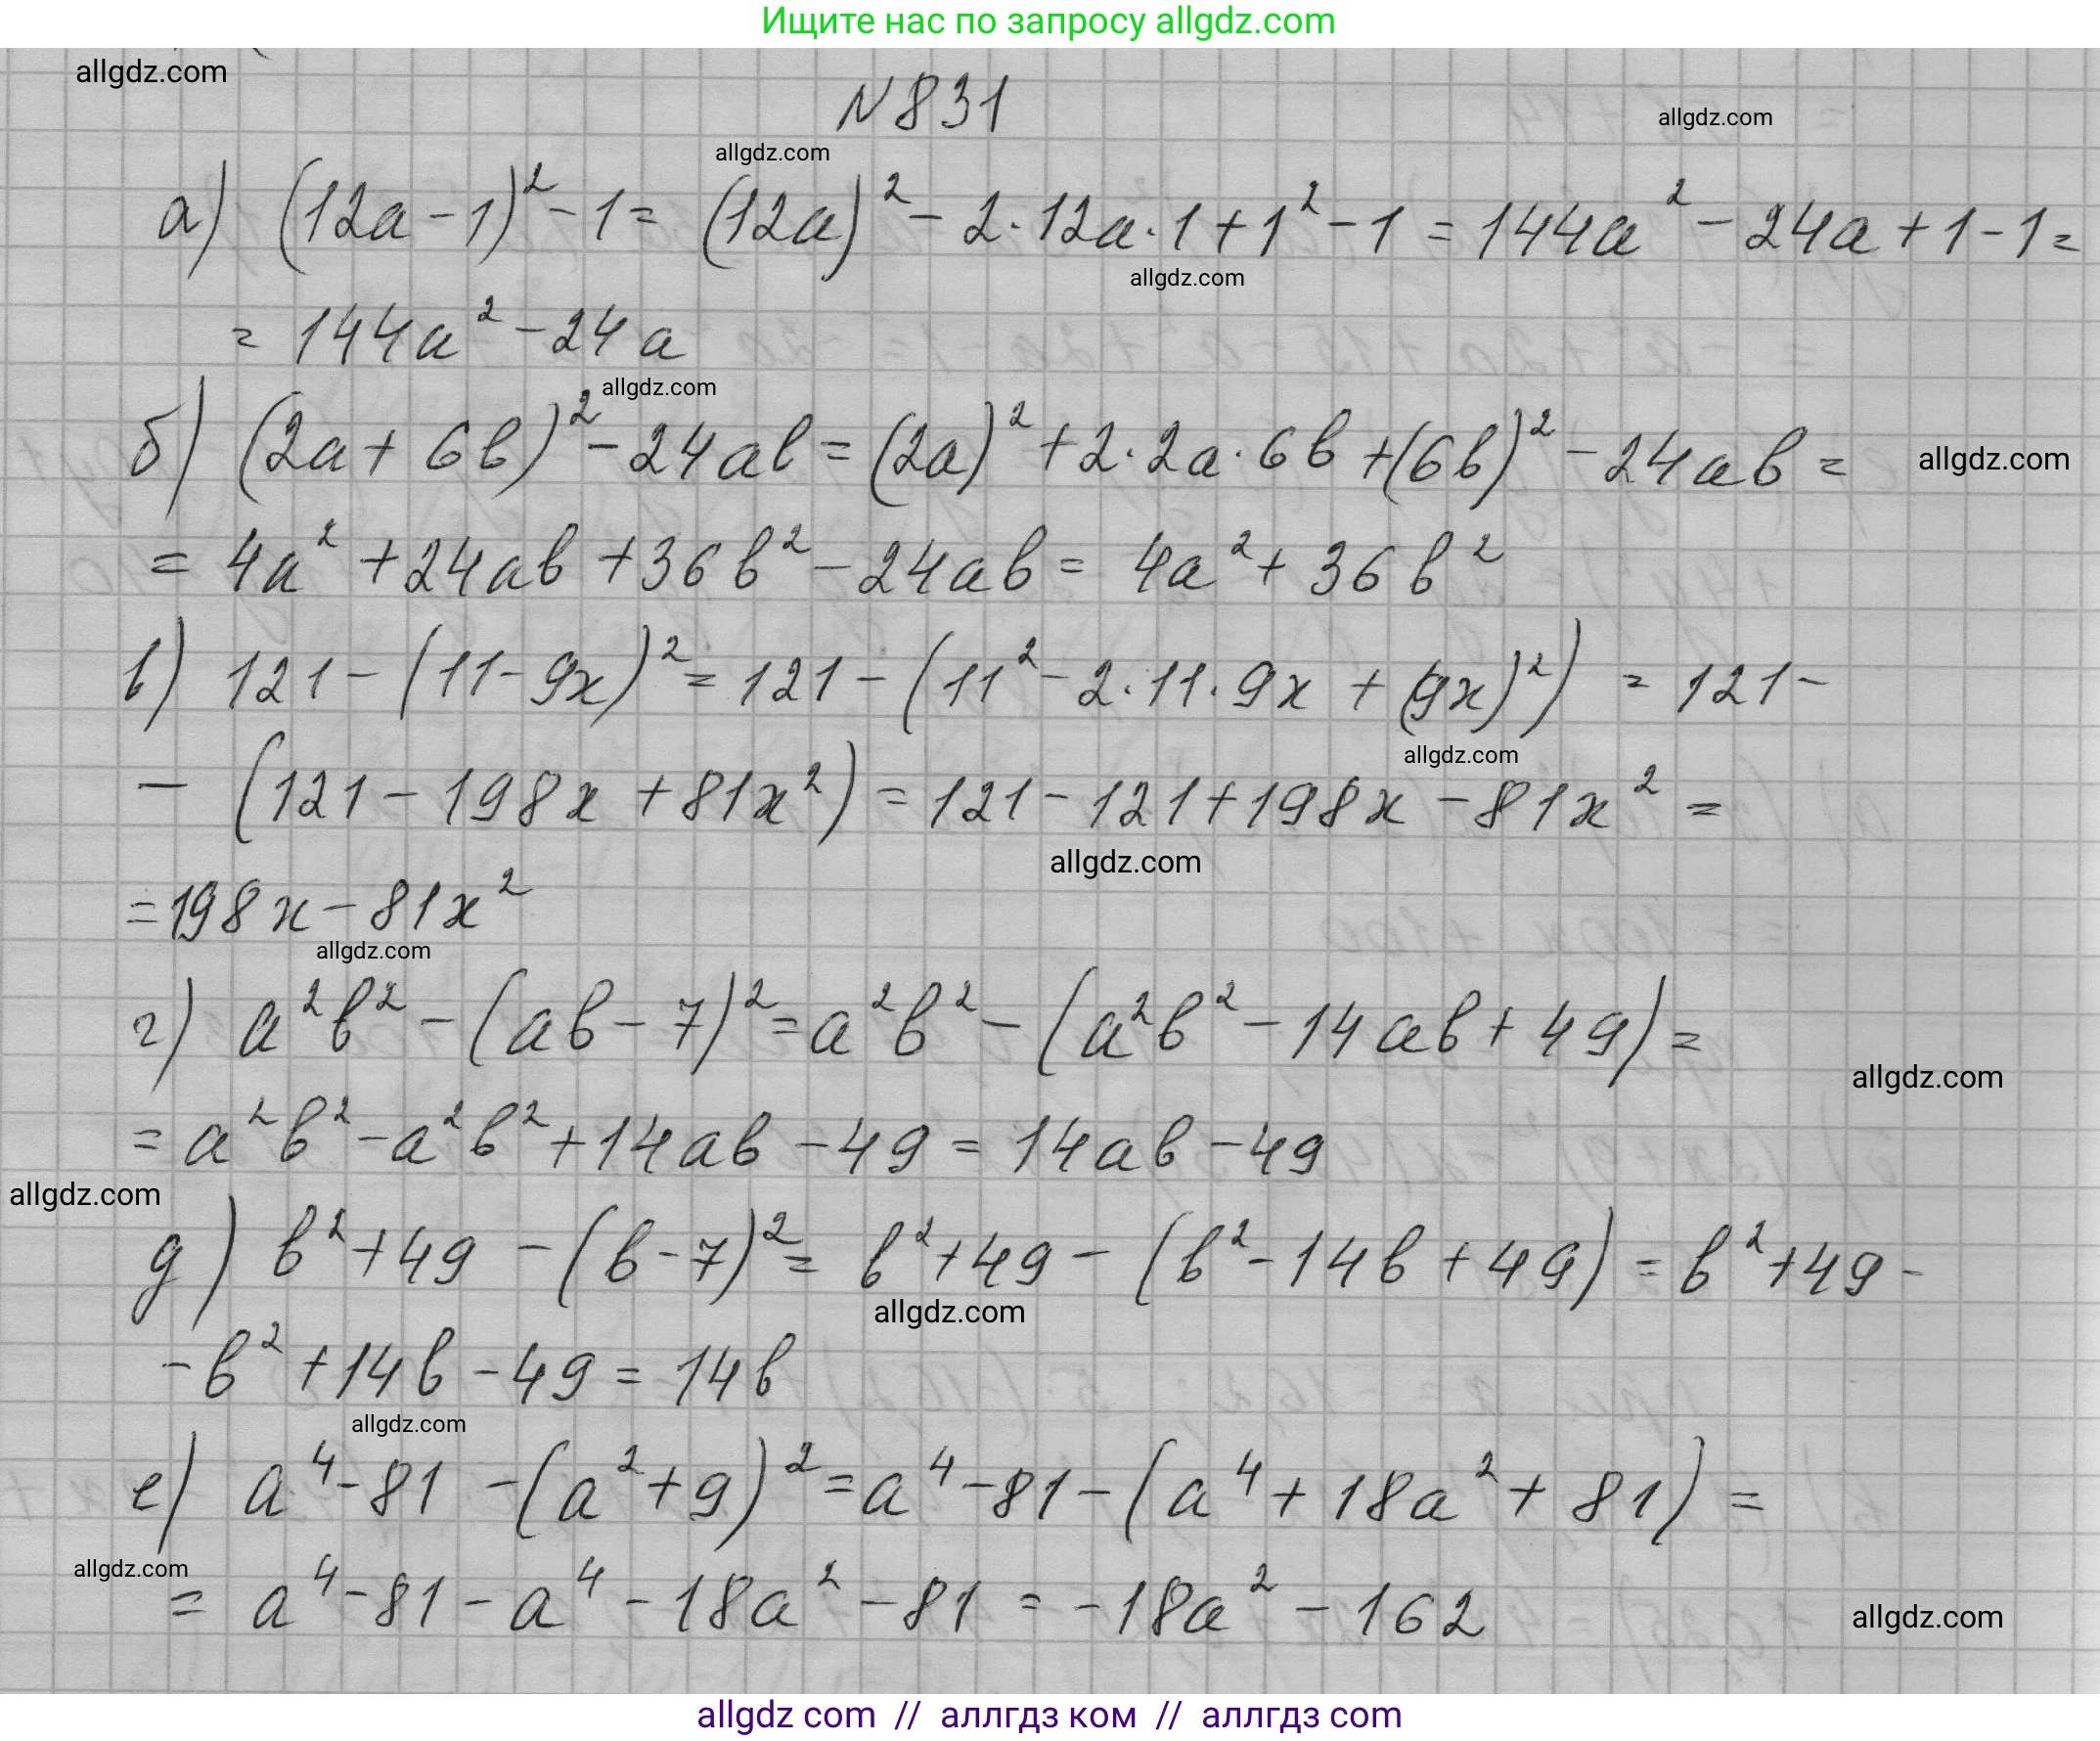 Ищите нас по запросу allgdz.com
allgdz.com
N 831
allgdz.com
allgdz.com
а) (12a - 1)² - 1 = (12a)² - 2·12a·1 + 1² - 1 = 144a² - 24a + 1 - 1 =
allgdz.com
= 144a² - 24a
allgdz.com
б) (2a + 6b)² - 24ab = (2a)² + 2·2a·6b + (6b)² - 24ab =
allgdz.com
= 4a² + 24ab + 36b² - 24ab = 4a² + 36b²
в) 121 - (11 - 9x)² = 121 - (11² - 2·11·9x + (9x)²) = 121 -
allgdz.com
- (121 - 198x + 81x²) = 121 - 121 + 198x - 81x² =
allgdz.com
= 198x - 81x²
allgdz.com
г) a²b² - (ab - 7)² = a²b² - (a²b² - 14ab + 49) =
allgdz.com
= a²b² - a²b² + 14ab - 49 = 14ab - 49
allgdz.com
д) b² + 49 - (b - 7)² = b² + 49 - (b² - 14b + 49) = b² + 49 -
allgdz.com
- b² + 14b - 49 = 14b
allgdz.com
е) a⁴ - 81 - (a² + 9)² = a⁴ - 81 - (a⁴ + 18a² + 81) =
allgdz.com
= a⁴ - 81 - a⁴ - 18a² - 81 = -18a² - 162
allgdz.com
allgdz com // аллгдз ком // аллгдз com